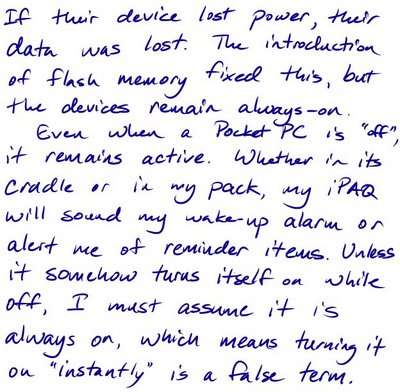 If their device lost power, their
data was lost. The introduction
of flash memory fixed this, but
the devices remain always-on.
Even when a Pocket PC is "off",
it remains active. Whether in its
cradle or in my pack, my iPAQ
will sound my wake-up alarm or
alert me of reminder items. Unless
it somehow turns itself on while
off, I must assume it is
always on, which means turning it
on "instantly" is a false term.